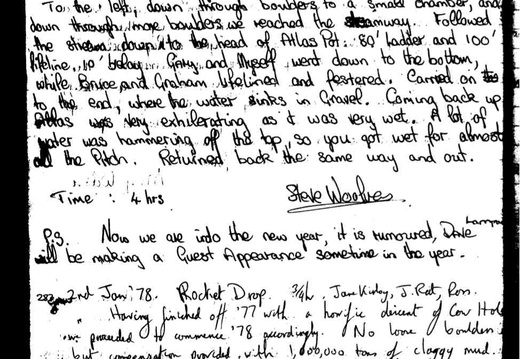 To the left, down through boulders to a small chamber, and
down through more boulders we reached the streamway. Followed
the stream down to the head of Atlas Pot. 80' ladder and 100'
lifeline, 10' belay. Gary and Myself went down to the bottom,
while Bruce and Graham lifelined and festered. Carried on
to the end, where the water sinks in Gravel. Coming back up
Atlas was very exhilerating as it was very wet. A lot of
water was hammering off the top, so you got wet for almost
all the Pitch. Returned back the same way and out.
Time : 4 hrs
Steve Woolve
P.S. Now we are into the new year, it is rumoured, Dave
will be making a Guest Appearance sometime in the year.
2nd Jan '78. Rocket Drop. 3/4h. Jane Kirby, J. Rat, Ross.
Having finished off '77 with a horrific descent of Cow Hole
we proceeded to commence '78 accordingly. No loose boulders
but compensation provided with 1,000,000 tons of claggy mud.